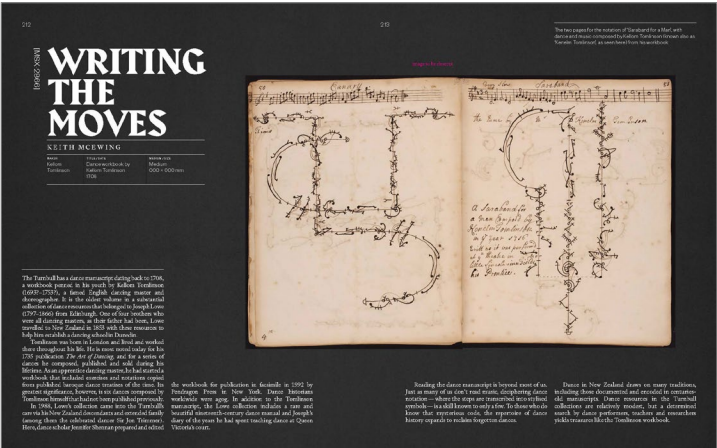 212
213
The two pages for the notation of 'Saraband for a Man', with
dance and music composed by Kellom Tomlinson (known also as
'Kenelm Tomlinson', as seen here) from his workbook
[MSX 2966]
WRITING
THE
MOVES
KEITH MCEWING
Kellom
Tomlinson
Dance workbook by
Kellom Tomlinson
1708
Medium
000 × 600 mm
The Turnbull has a dance manuscript dating back to 1708,
a workbook penned in his youth by Kellom Tomlinson
(1693?–1753?), a famed English dancing master and
choreographer. It is the oldest volume in a substantial
collection of dance resources that belonged to Joseph Lowe
(1797–1866) from Edinburgh. One of four brothers who
were all dancing masters, as their father had been, Lowe
travelled to New Zealand in 1853 with these resources to
help him establish a dancing school in Dunedin.
Tomlinson was born in London and lived and worked
there throughout his life. He is most noted today for his
1735 publication The Art of Dancing, and for a series of
dances he composed, published and sold during his
lifetime. As an apprentice dancing master, he had started a
workbook that included exercises and notations copied
from published baroque dance treatises of the time. Its
greatest significance, however, is six dances composed by
Tomlinson himself that had not been published previously.
In 1988, Lowe's collection came into the Turnbull's
care via his New Zealand descendants and extended family
(among them the celebrated dancer Sir Jon Trimmer).
Here, dance scholar Jennifer Shennan prepared and edited
the workbook for publication in facsimile in 1992 by
Pendragon Press in New York. Dance historians
worldwide were agog. In addition to the Tomlinson
manuscript, the Lowe collection includes a rare and
beautiful nineteenth-century dance manual and Joseph's
diary of the years he had spent teaching dance at Queen
Victoria's court.
Reading the dance manuscript is beyond most of us.
Just as many of us don't read music, deciphering dance
notation — where the steps are transcribed into stylised
symbols — is a skill known to only a few. To those who do
know that mysterious code, the repertoire of dance
history expands to reclaim forgotten dances.
Dance in New Zealand draws on many traditions,
including those documented and encoded in centuries-
old manuscripts. Dance resources in the Turnbull
collections are relatively modest, but a determined
search by dance performers, teachers and researchers
yields treasures like the Tomlinson workbook.
Saraband
A Saraband for
a Man Compos'd by